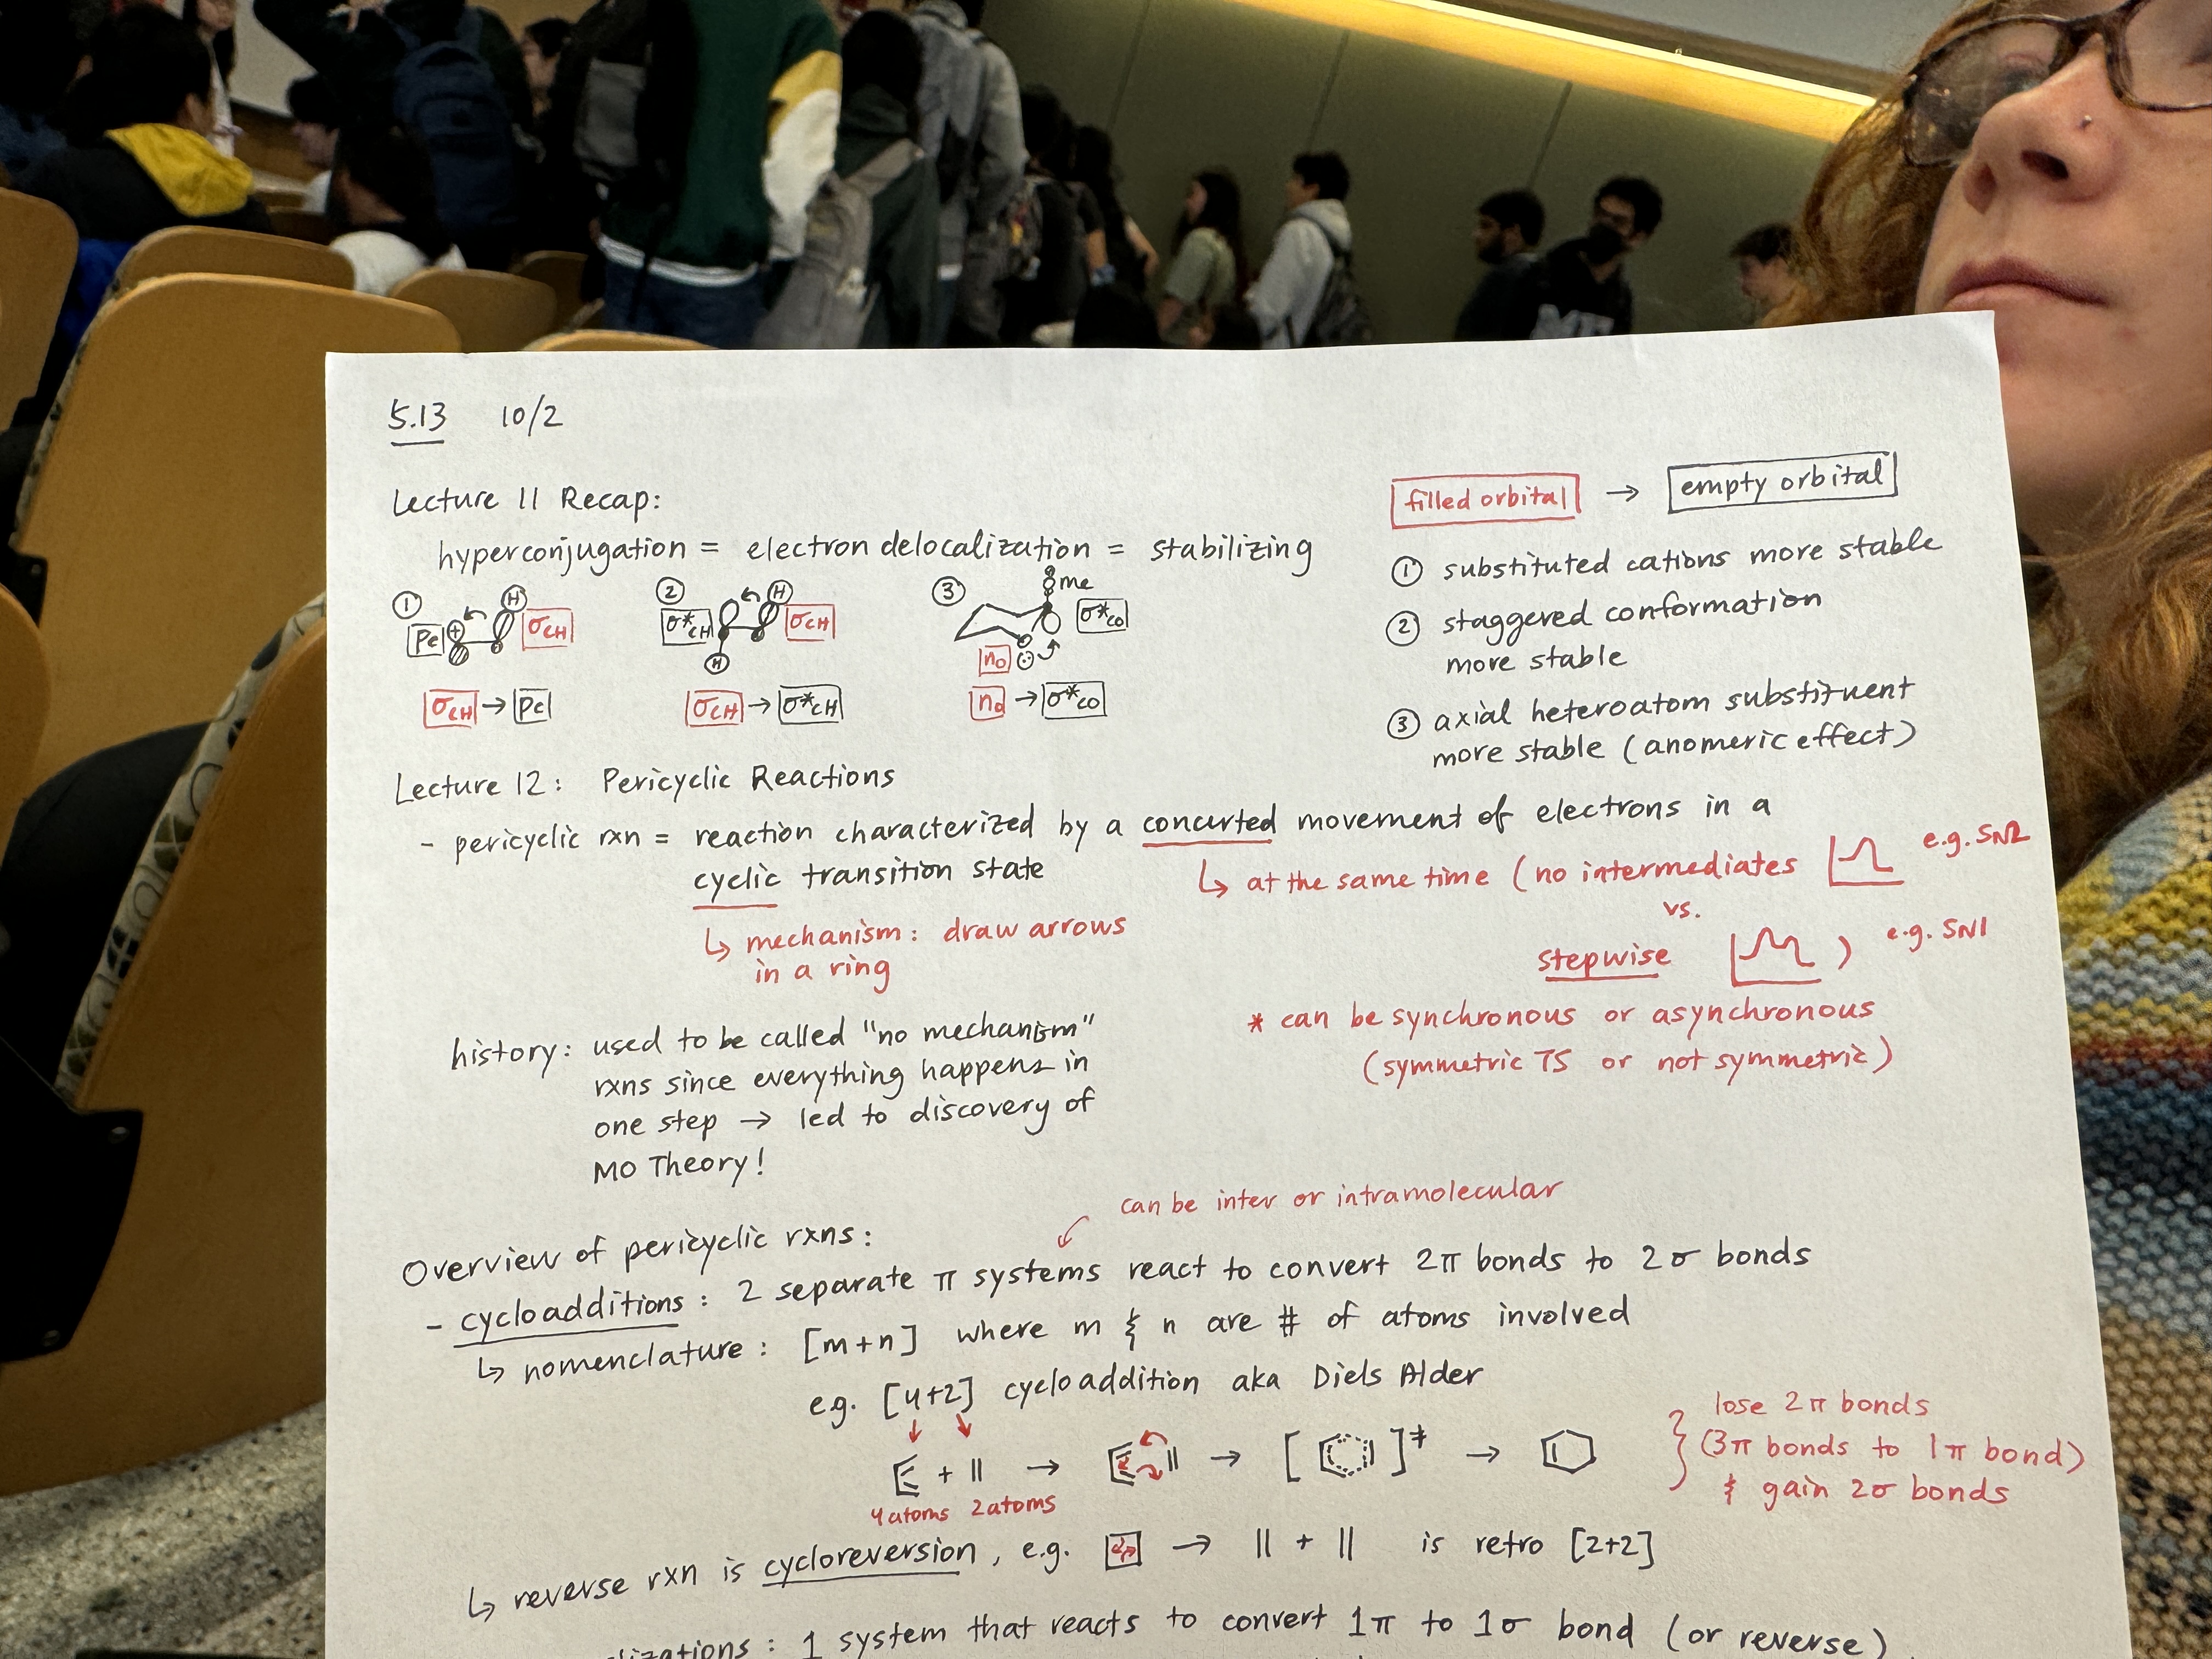 5.13 10/2
Lecture 11 Recap:
filled orbital → empty orbital
hyperconjugation = electron delocalization = stabilizing
① ② ③
H H Me
Pc + σCH σ*CH σCH σ*CO
H nO
σCH → Pc σCH → σ*CH nO → σ*CO
① substituted cations more stable
② staggered conformation
more stable
③ axial heteroatom substituent
more stable (anomeric effect)
Lecture 12: Pericyclic Reactions
- pericyclic rxn = reaction characterized by a concerted movement of electrons in a
cyclic transition state
↳ at the same time (no intermediates e.g. SN2
vs.
stepwise ) e.g. SN1
↳ mechanism: draw arrows
in a ring
* can be synchronous or asynchronous
(symmetric TS or not symmetric)
history: used to be called "no mechanism"
rxns since everything happens in
one step → led to discovery of
MO Theory!
can be inter or intramolecular
Overview of pericyclic rxns:
- cycloadditions: 2 separate π systems react to convert 2π bonds to 2σ bonds
↳ nomenclature: [m+n] where m & n are # of atoms involved
e.g. [4+2] cycloaddition aka Diels Alder
+ → → [ ]‡ →
4 atoms 2 atoms
lose 2π bonds
(3π bonds to 1π bond)
& gain 2σ bonds
↳ reverse rxn is cycloreversion, e.g. → || + || is retro [2+2]
: 1 system that reacts to convert 1π to 1σ bond (or reverse)